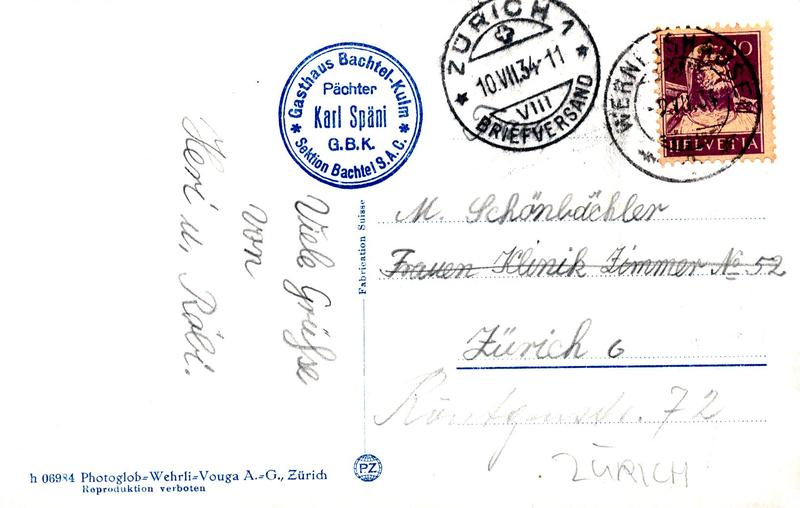 Gasthaus Bachtel-Kulm
Pächter
Karl Späni
G.B.K.
Sektion Bachtel S.A.C.
ZÜRICH 1
10.VII.34-11
VIII
BRIEFVERSAND
10
HELVETIA
Viele Grüsse
von
Heri u, Röbi.
Fabrication Suisse
M. Schönbächler
Frauen Klinik Zimmer No 52
Zürich 6
Röntgenstr. 72
ZÜRICH
h 06984 Photoglob=Wehrli=Vouga A.=G., Zürich
Reproduktion verboten
PZ